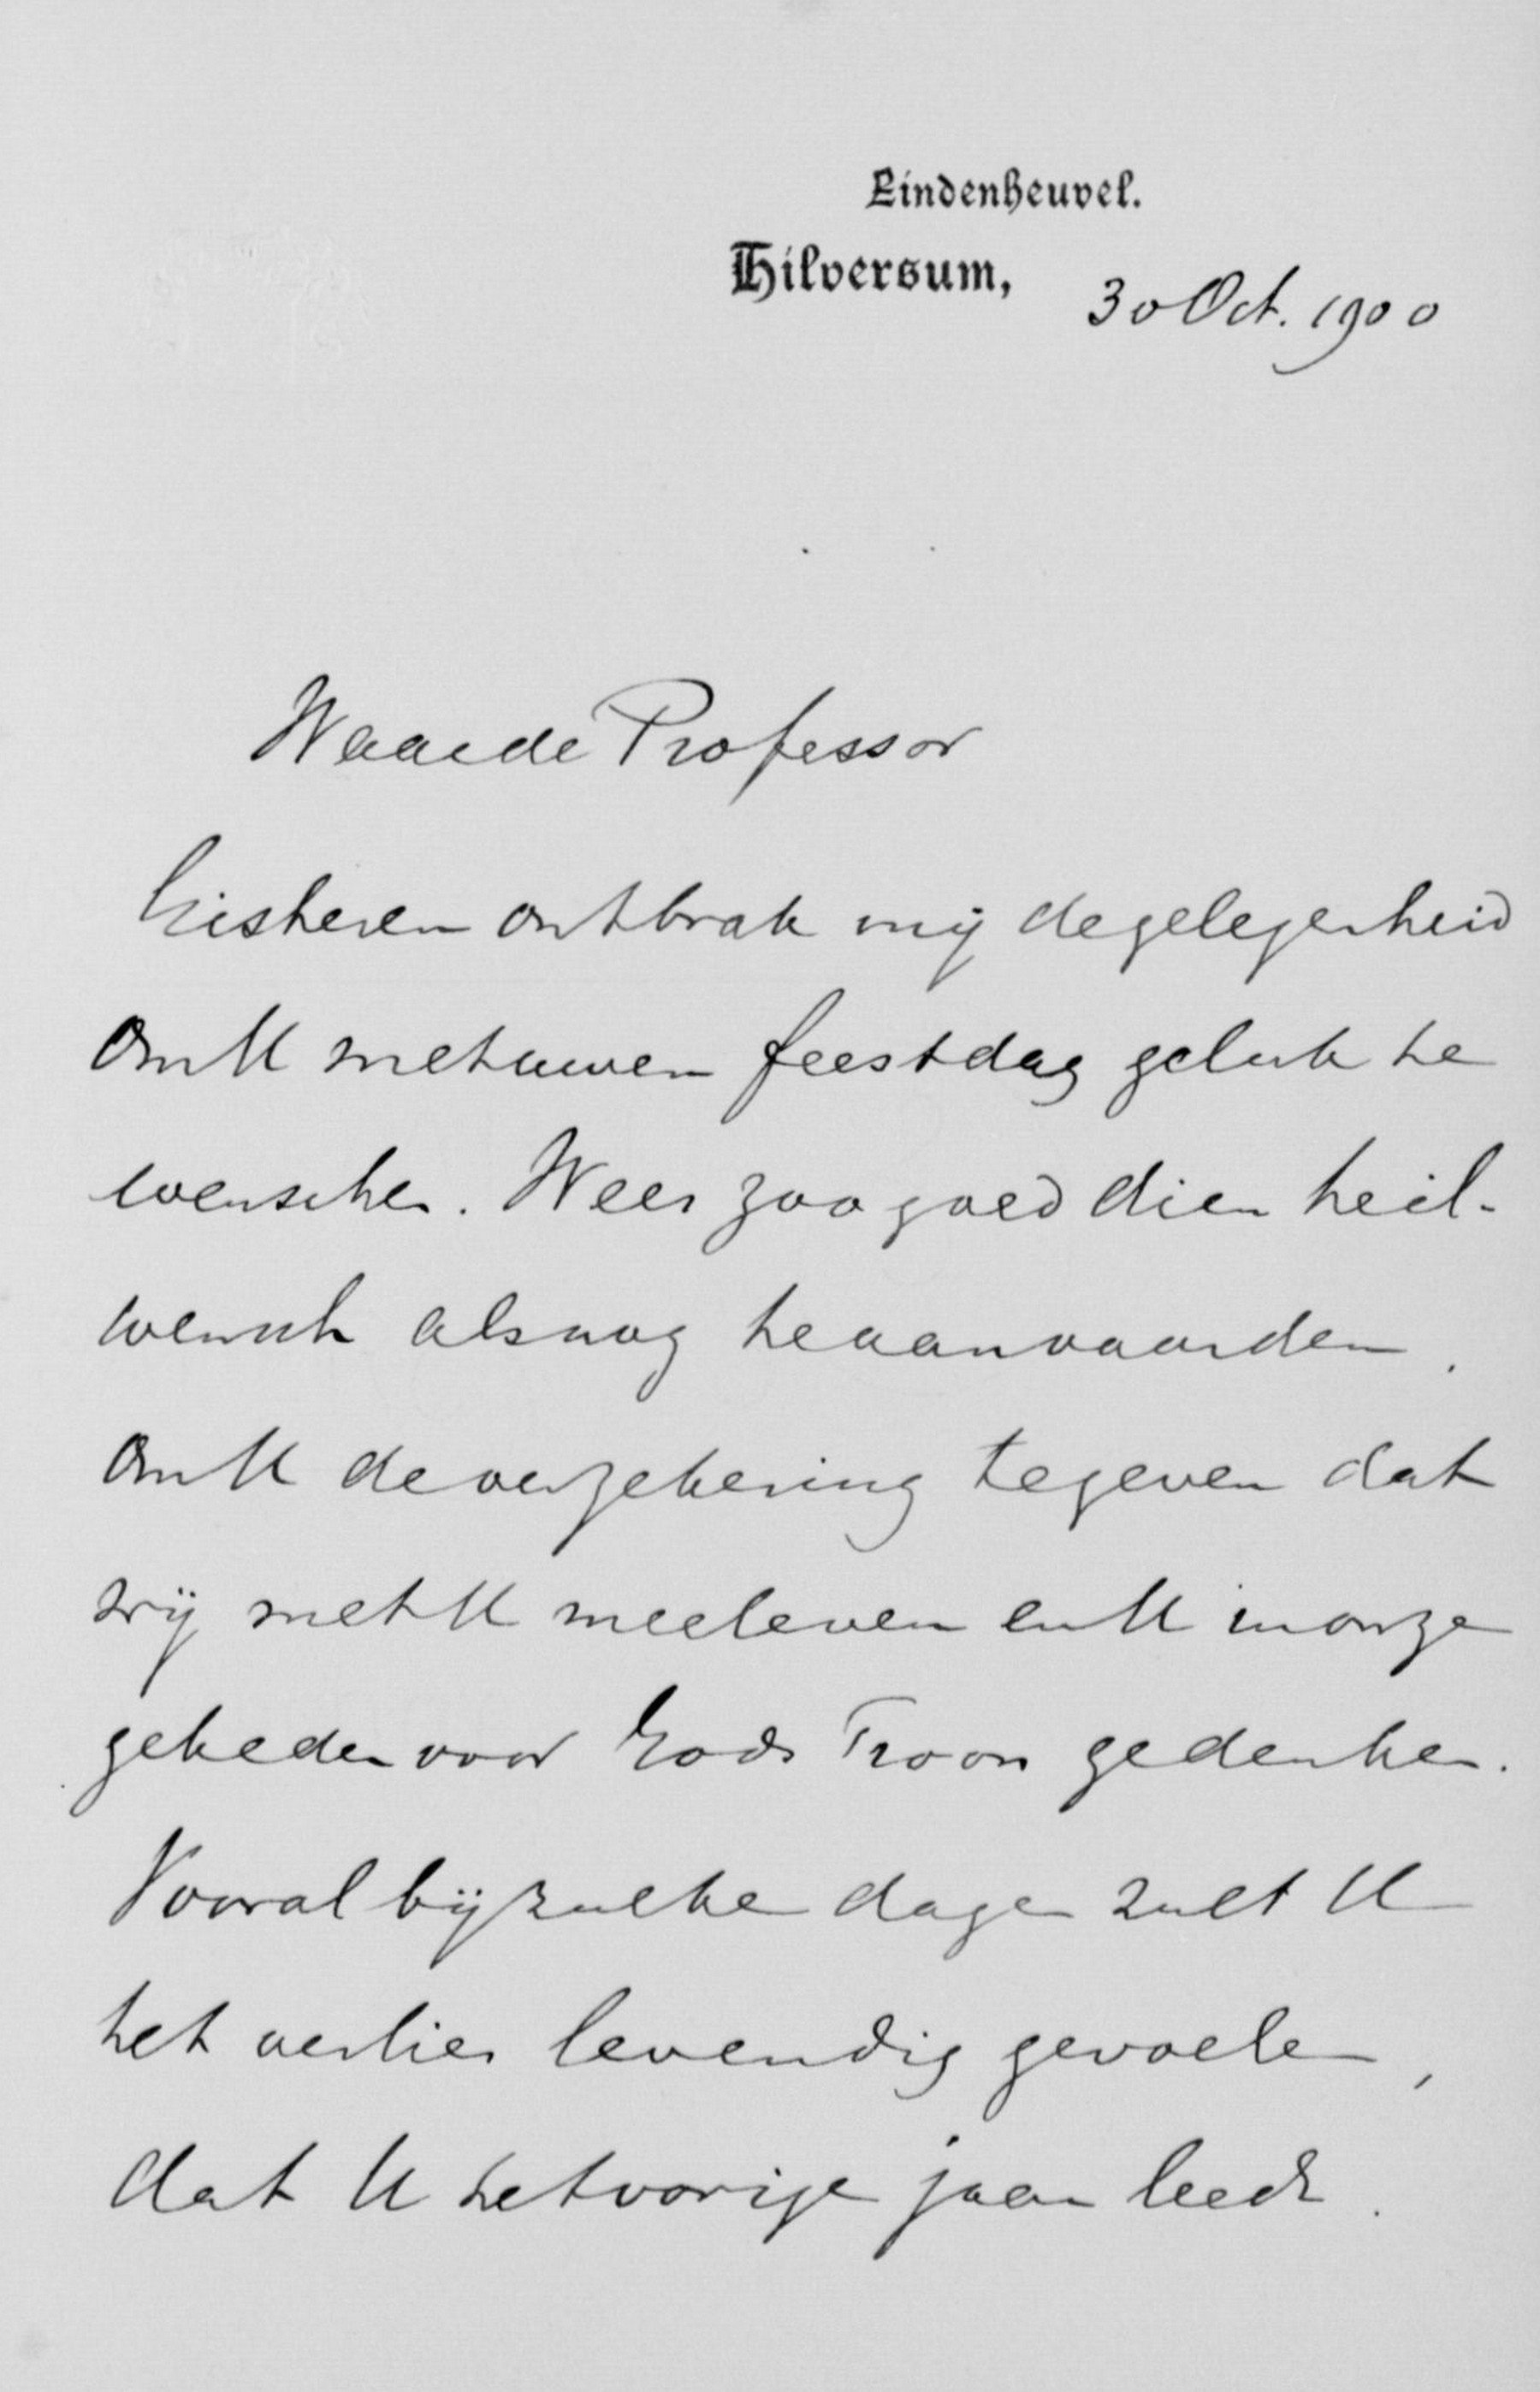 Lindenheuvel.
Hilversum, 30 Oct. 1900
Waarde Professor
Gisteren ontbrak mij de gelegenheid
om U met uwen feestdag geluk te
wenschen. Wees zoo goed dien heil-
wensch alsnog te aanvaarden.
Om U de verzekering te geven dat
wij met U meeleven en U in onze
gebeden voor Gods Troon gedenken.
Vooral bij zulke dagen zult U
het verlies levendig gevoelen,
dat U het vorige jaar leedt.